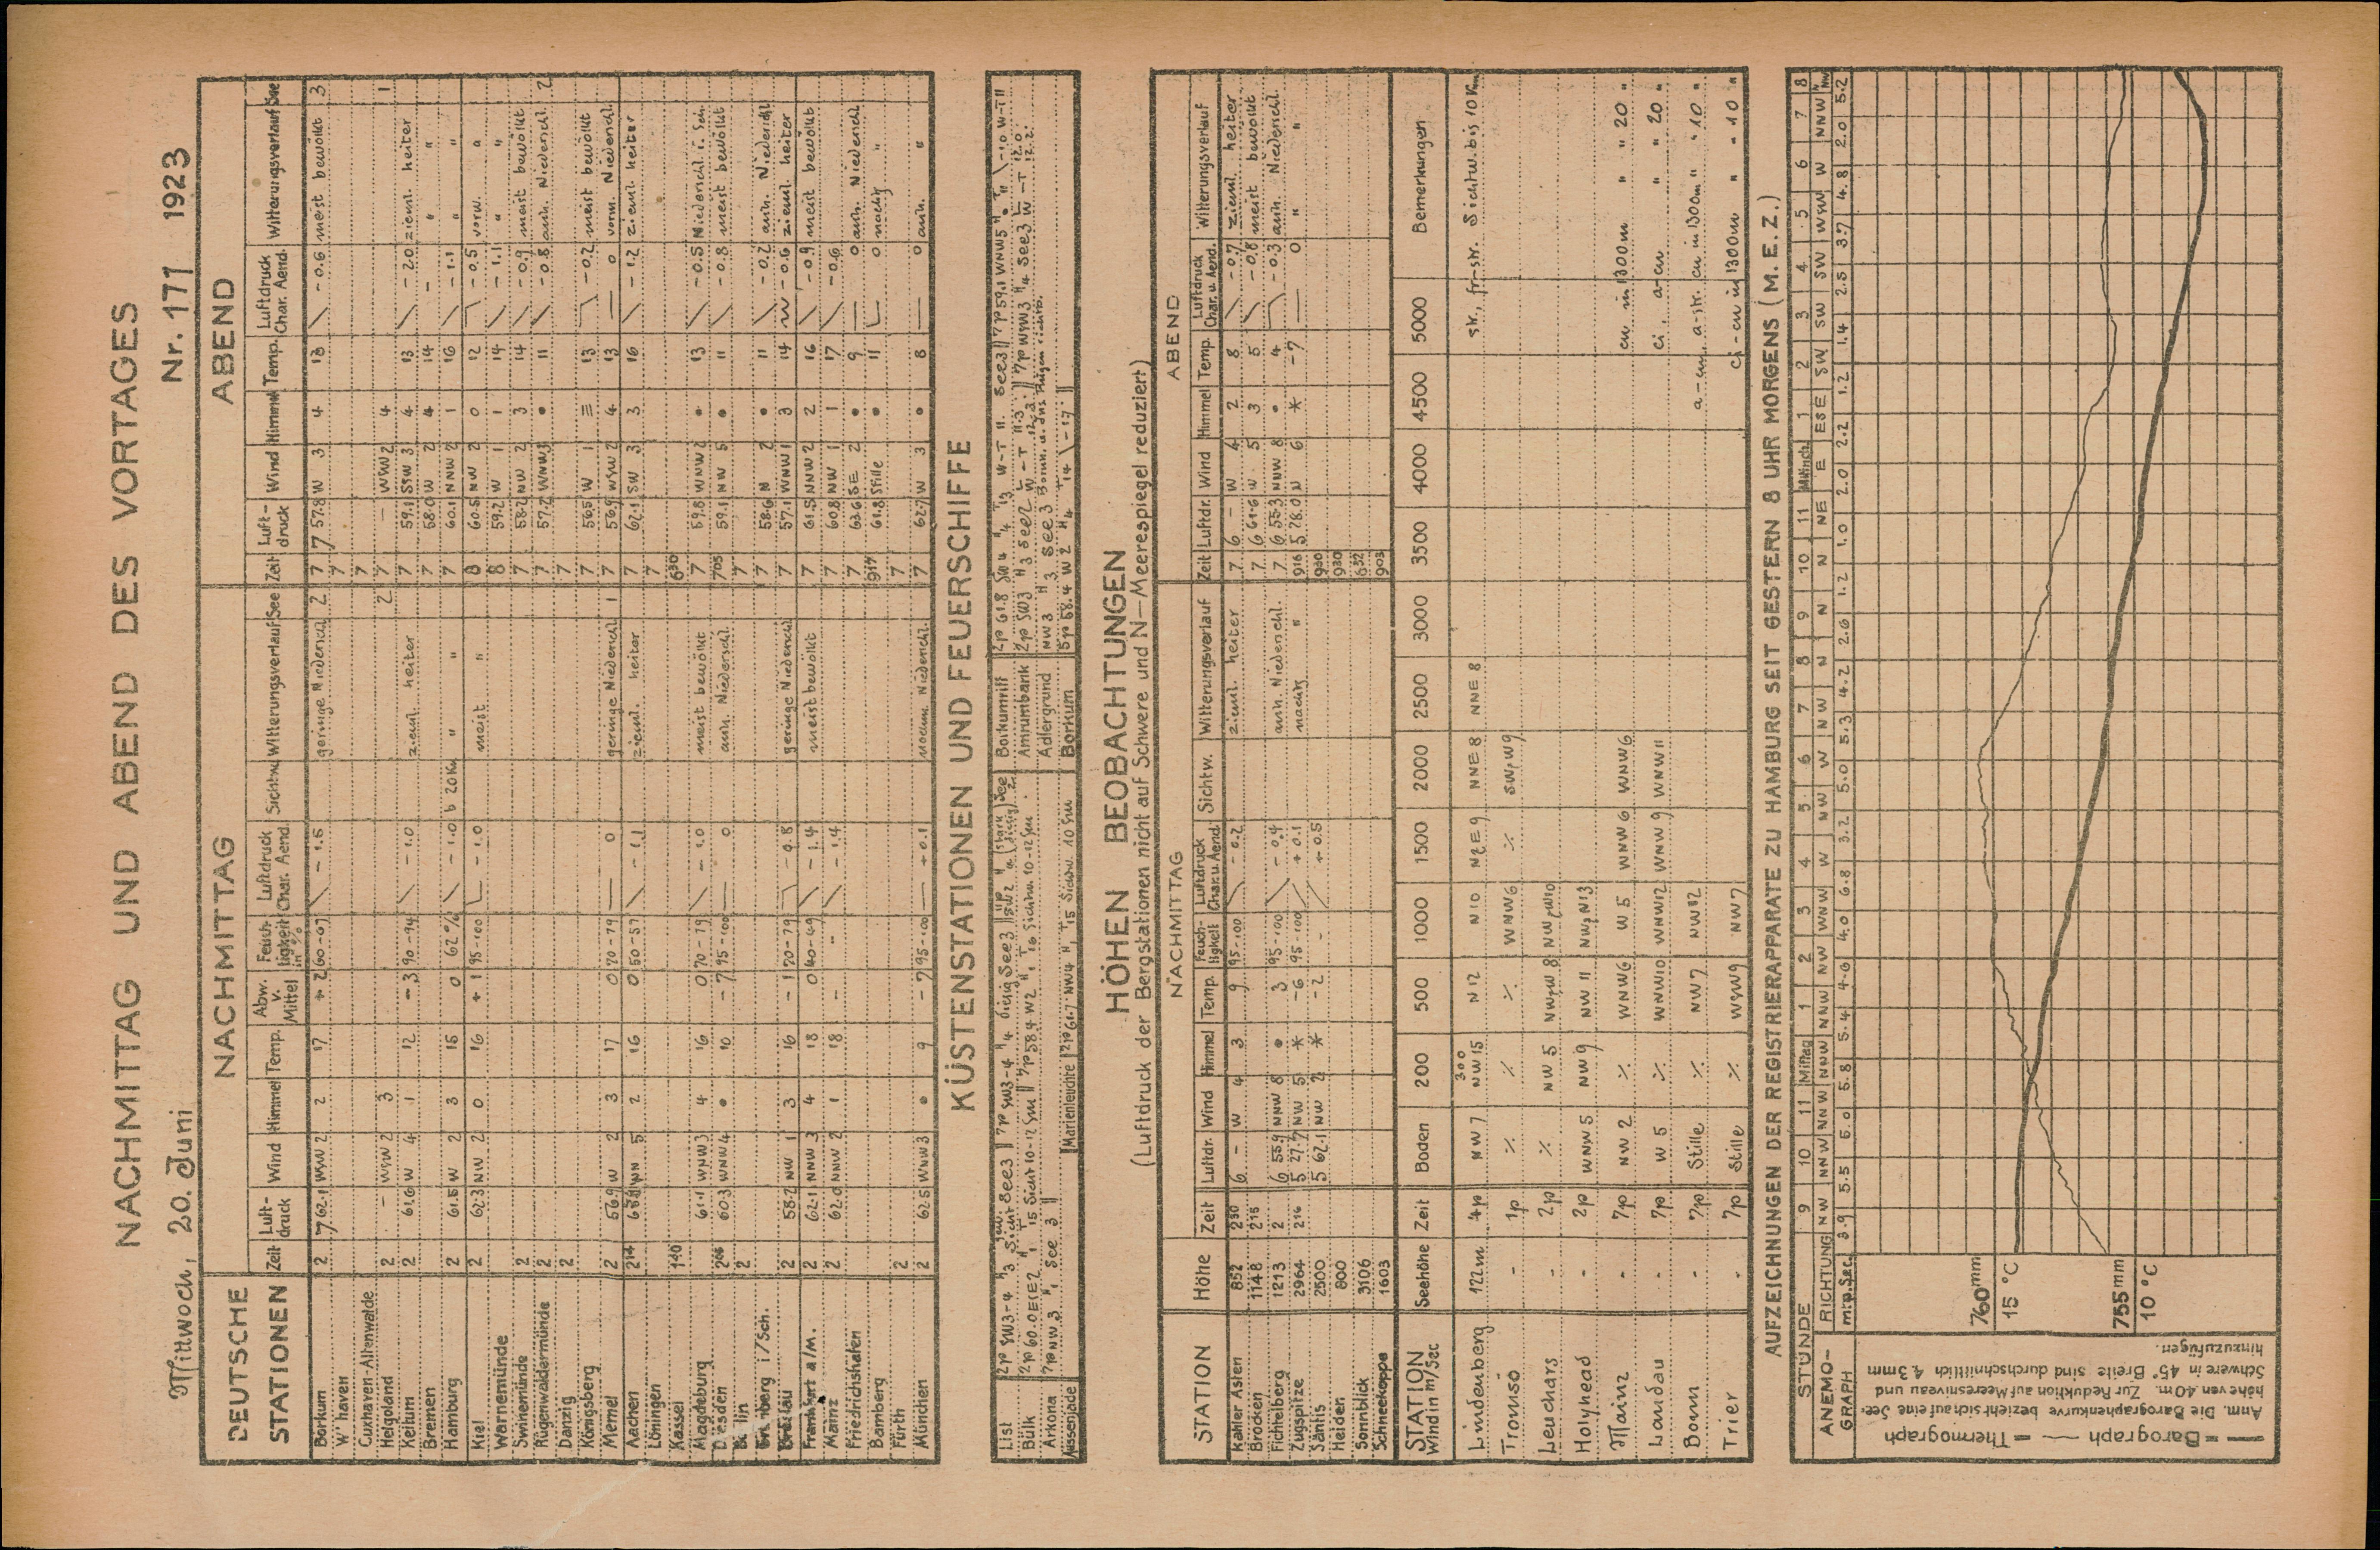 NACHMITTAG UND ABEND DES VORTAGES
Mittwoch, 20. Juni Nr. 171 1923
DEUTSCHE STATIONEN NACHMITTAG ABEND
Zeit Luftdruck Wind Himmel Temp. Abw. v. Mittel Feuchtigkeit in % Luftdruck Char. Aend. Sichtw. Witterungsverlauf See Zeit Luftdruck Wind Himmel Temp. Luftdruck Char. Aend. Witterungsverlauf See
Borkum 2 762.1 WSW 2 2 17 + 2 60-69 \ - 1.5 geringe Niederschl 2 7 757.8 W 3 4 13 \ - 0.6 meist bewölkt 3
W'haven 7
Cuxhaven-Altenwalde 7
Helgoland 2 - WSW 2 3 2 7 - WSW 2 4 1
Keitum 2 61.6 W 4 1 12 - 3 90-94 \ - 1.0 zieml. heiter 7 59.1 SSW 3 4 13 \ - 2.0 zieml. heiter
Bremen 7 58.0 W 2 4 14 - " "
Hamburg 2 61.5 W 2 3 15 0 62% \ - 1.0 b 20Km " " 7 60.1 NNW 2 1 16 \ - 1.1 " "
Kiel 2 62.3 NW 2 0 16 + 1 95-100 - 1.0 meist " 8 60.5 NW 2 0 12 - 0.5 vorw. "
Warnemünde 8 59.2 W 1 1 14 \ - 1.1 " "
Swinemünde 2 7 58.2 NW 2 3 14 \ - 0.9 meist bewölkt
Rügenwaldermünde 2 7 57.2 WNW 3 • 11 \ - 0.8 anh. Niederschl. 2
Danzig 2 7
Königsberg 7 56.5 W 1 ≡ 13 - 0.2 meist bewölkt
Memel 2 56.9 W 2 3 17 0 70-79 — 0 geringe Niederschl 1 7 56.9 WSW 2 4 13 — 0 vorm. Niederschl.
Aachen 2 14 5 2 16 0 50-59 \ - 1.1 zieml. heiter 7 62.1 SW 3 3 16 \ - 1.2 zieml. heiter
Löningen 7
Kassel 1 40 6 30
Magdeburg 61.1 WNW 3 4 16 0 70-79 \ - 1.0 meist bewölkt 7 59.8 WNW 2 • 13 \ - 0.5 Niederschl. i. Sch.
Dresden 60.3 WNW 4 • 10 - 7 95-100 — 0 anh. Niederschl. 7 05 59.1 NW 5 • 11 \ - 0.8 meist bewölkt
2 7
7 58.6 N 2 • 11 \ - 0.2 anh. Niederschl
Breslau 2 58.2 NW 1 3 16 - 1 70-79 - 0.8 geringe Niederschl 7 57.1 WNW 1 3 14 - 0.6 zieml. heiter
Frankfurt a/M. 2 62.1 NNW 3 4 18 0 40-49 \ - 1.4 meist bewölkt 7 61.5 NNW 2 2 16 \ - 0.9 meist bewölkt
Mainz 2 62.0 NNW 2 1 18 - - \ - 1.4 7 60.8 NW 1 1 17 \ - 0.6
Friedrichshafen 7 63.6 SE 2 • 9 — 0 anh. Niederschl
Bamberg 9 17 61.8 Stille • 11 0 nachts "
Fürth 2 7
München 2 62.5 WNW 3 • 9 - 7 95-100 — + 0.1 nachm. Niederschl. 7 62.7 W 3 • 8 — 0 anh. "
KÜSTENSTATIONEN UND FEUERSCHIFFE
List
Bülk
Arkona 7p NW 3
Aussenjade
Marienleuchte 2p 61.7 NW4
Borkumriff 2p 61.8 SW 4
Amrumbank 2p SW3
Adlergrund NW 3
Borkum 5p 58.4 W 2
HÖHEN BEOBACHTUNGEN
(Luftdruck der Bergstationen nicht auf Schwere und N-Meeresspiegel reduziert)
STATION Höhe NACHMITTAG ABEND
Zeit Luftdr. Wind Himmel Temp. Feuchtigkeit Luftdruck Char. u. Aend. Sichtw. Witterungsverlauf Zeit Luftdr. Wind Himmel Temp. Luftdruck Char. u. Aend. Witterungsverlauf
Kahler Asten 852 2 30 6 - W 4 3 9 95-100 \ - 0.2 zieml. heiter 7 6 - W 4 2 8 \ - 0.7 zieml. heiter
Brocken 1148 2 15 7 6 61.6 W 5 3 5 \ - 0.8 meist bewölkt
Fichtelberg 1213 2 6 55.9 NNW 8 • 3 95-100 \ - 0.4 anh. Niederschl. 7 6 55.3 NNW 8 • 4 - 0.3 anh. Niederschl.
Zugspitze 2964 2 14 5 27.7 NW 5 * - 6 95-100 / + 0.1 nachts " 9 16 5 28.0 N 6 * - 7 — 0 " "
Säntis 2500 5 62.1 NW 2 * - 2 - / + 0.5 9 30
Heiden 800 9 30
Sonnblick 3106 6 32
Schneekoppe 1603 9 03
STATION Wind in m/sec Seehöhe Zeit Boden 200 500 1000 1500 2000 2500 3000 3500 4000 4500 5000 Bemerkungen
Lindenberg 122 m 4p NW 7 300 NW 15 N 12 N 10 NNE 8 NNE 8 str., fr-str. Sichtw. bis 10 Km
Tromsö - 1p ٪ ٪ ٪ WNW 6 ٪
Leuchars - 2p ٪ NW 5
Holyhead - 2p WNW 5 NW 9 NW 11
Mainz - 7p NW 2 ٪ WNW 6 W 5 WNW 6 WNW 6 cu in 1300m " " 20 "
Landau - 7p W 5 ٪ WNW 10 WNW 12 WNW 9 WNW 11 ci, a-cu " " 20 "
Bonn - 7p Stille ٪ NW 7 NW 12 a-cu, a-str. cu in 1300m " " 10 "
Trier - 7p Stille ٪ NW 7 ci-cu in 1300m " " 10 "
AUFZEICHNUNGEN DER REGISTRIERAPPARATE ZU HAMBURG SEIT GESTERN 8 UHR MORGENS (M. E. Z.)
STUNDE 9 10 11 Mittag 1 2 3 4 5 6 7 8 9 10 11 Mttnch. 1 2 3 4 5 6 7 8
ANEMOGRAPH RICHTUNG NW NNW NNW NNW NNW NW WNW W NW W NW N N N NE E ESE SW SW SW WSW W NNW
m.p.Sec. 3.9 5.5 5.0 5.8 5.4 4.6 4.0 6.8 3.2 5.0 5.3 4.2 2.6 1.2 1.0 2.0 2.2 1.2 1.4 2.5 3.7 4.8 2.0 5.2
760 mm
15 °C
755 mm
10 °C
— = Barograph — = Thermograph
Anm. Die Barographenkurve bezieht sich auf eine Seehöhe von 40 m. Zur Reduktion auf Meeresniveau und Schwere in 45° Breite sind durchschnittlich 4.3 mm hinzuzufügen.